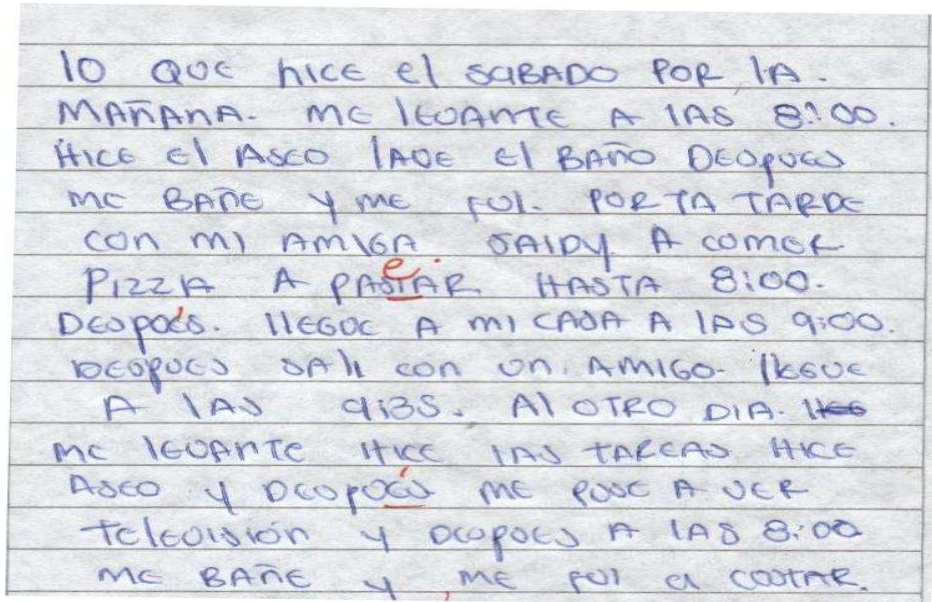 lO QUE hICE El SABADO POR lA.
MAÑANA. ME lEVANTE A lAS 8:00.
HICE El ASEO lAVE El BAÑO DESPUES
ME BAÑE Y ME FUI. POR TA TARDE
CON MI AMIGA SAIDY A COMER
PIZZIA A PASIAR HASTA 8:00.
DESPUÉS. llEGUE A MI CASA A lAS 9:00.
DESPUES SAlI CON UN. AMIGO. llEGUE
A lAS 9:35. Al OTRO DIA.
ME lEVANTE HICE lAS TAREAS HICE
ASEO Y DESPUÉS ME PUSE A VER
TelEVISIÓN Y DESPUES A lAS 8:00
ME BAÑE Y ME FUI a COSTAR.